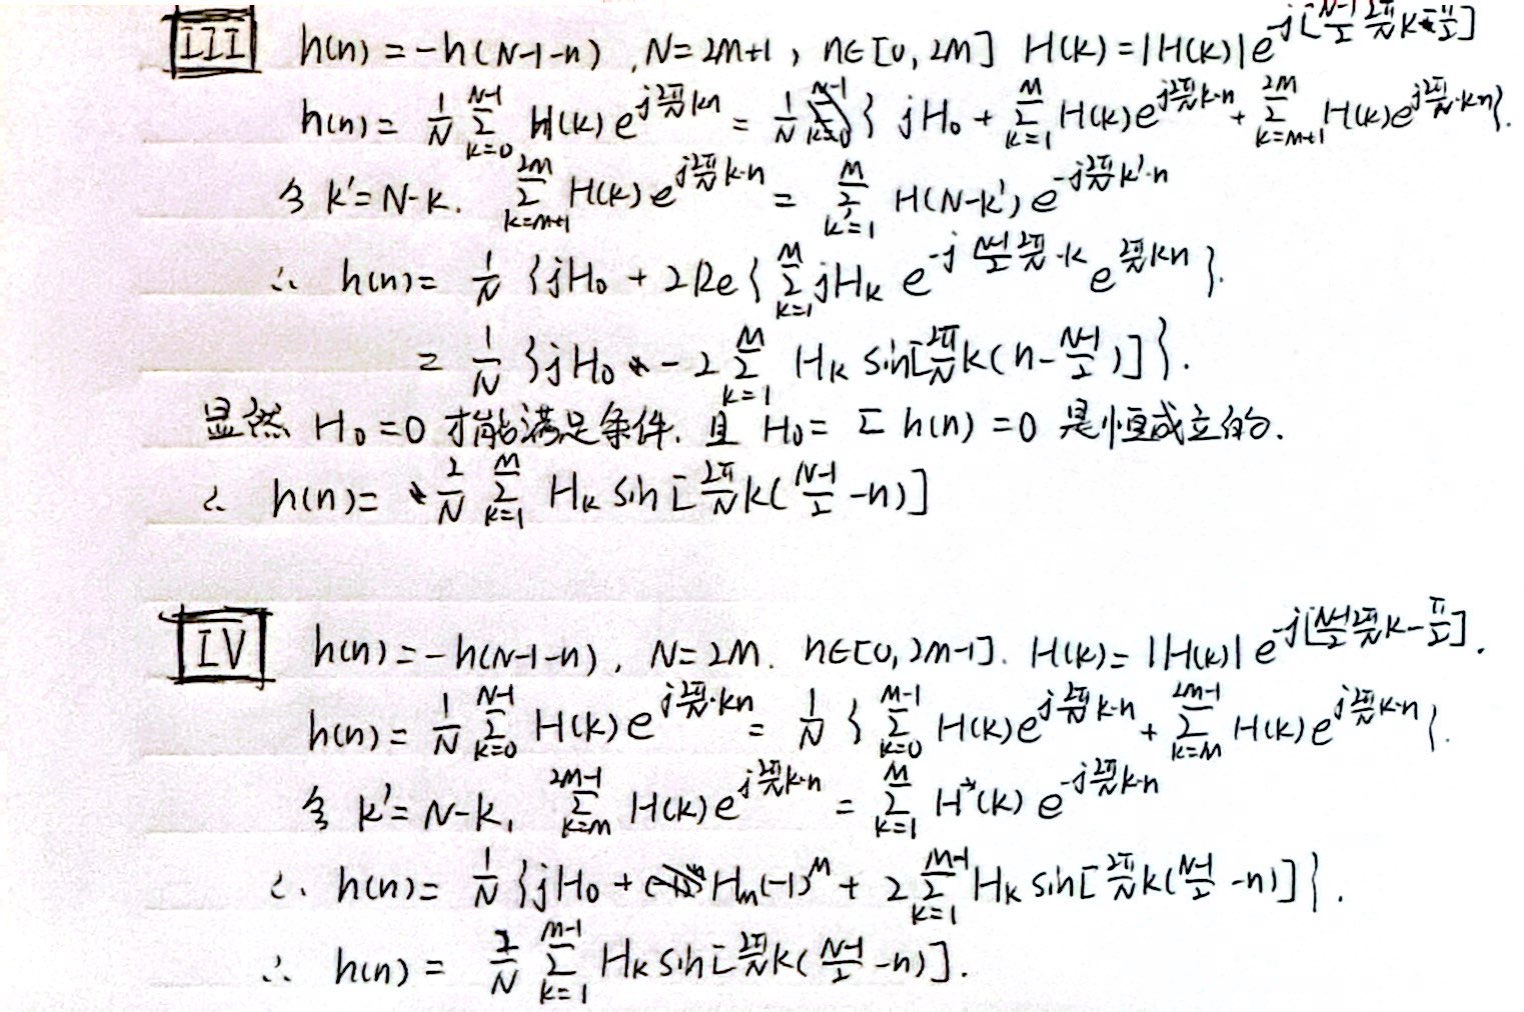 III h(n) = -h(N-1-n), N=2M+1, n∈[0, 2M] H(k)=|H(k)|e^{-j[\frac{N-1}{2}\frac{2π}{N}k-\frac{π}{2}]}
h(n) = \frac{1}{N} \sum_{k=0}^{N-1} H(k) e^{j\frac{2π}{N}kn} = \frac{1}{N} { jH_0 + \sum_{k=1}^{M} H(k)e^{j\frac{2π}{N}k·n} + \sum_{k=M+1}^{2M} H(k)e^{j\frac{2π}{N}·kn} }.
令 k'=N-k. \sum_{k=M+1}^{2M} H(k) e^{j\frac{2π}{N}k·n} = \sum_{k'=1}^{M} H(N-k') e^{-j\frac{2π}{N}k'·n}
∴ h(n) = \frac{1}{N} {jH_0 + 2Re{ \sum_{k=1}^{M} jH_k e^{-j\frac{N-1}{2}\frac{2π}{N}·k} e^{\frac{2π}{N}kn} }.
= \frac{1}{N} {jH_0 - 2 \sum_{k=1}^{M} H_k sin[\frac{2π}{N}k(n-\frac{N-1}{2})] }.
显然 H_0=0 才能满足条件. 且 H_0= Σ h(n) =0 是恒成立的.
∴ h(n) = \frac{2}{N} \sum_{k=1}^{M} H_k sin[\frac{2π}{N}k(\frac{N-1}{2}-n)]
IV h(n) = -h(N-1-n), N=2M. n∈[0, 2M-1]. H(k)=|H(k)| e^{-j[\frac{N-1}{2}\frac{2π}{N}k-\frac{π}{2}]}.
h(n) = \frac{1}{N} \sum_{k=0}^{N-1} H(k) e^{j\frac{2π}{N}·kn} = \frac{1}{N} { \sum_{k=0}^{M-1} H(k)e^{j\frac{2π}{N}k·n} + \sum_{k=M}^{2M-1} H(k) e^{j\frac{2π}{N}k·n} }.
令 k'=N-k, \sum_{k=M}^{2M-1} H(k) e^{j\frac{2π}{N}k·n} = \sum_{k=1}^{M} H^*(k) e^{-j\frac{2π}{N}k·n}
∴ h(n) = \frac{1}{N} {jH_0 + H_m(-1)^M + 2\sum_{k=1}^{M-1} H_k sin[\frac{2π}{N}k(\frac{N-1}{2}-n)] }.
∴ h(n) = \frac{2}{N} \sum_{k=1}^{M-1} H_k sin[\frac{2π}{N}k(\frac{N-1}{2}-n)].